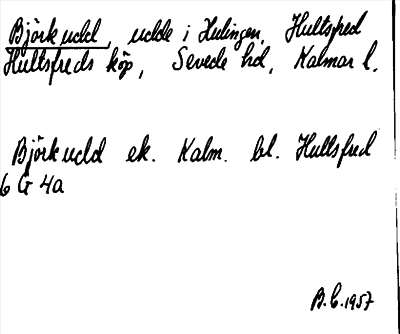 Björkudd, udde i Hulingen, Hultsfred
Hultsfreds köp, Sevede hd, Kalmar l.
Björkudd ek. Kalm. bl. Hultsfred
6 G 4a
B.C. 1957